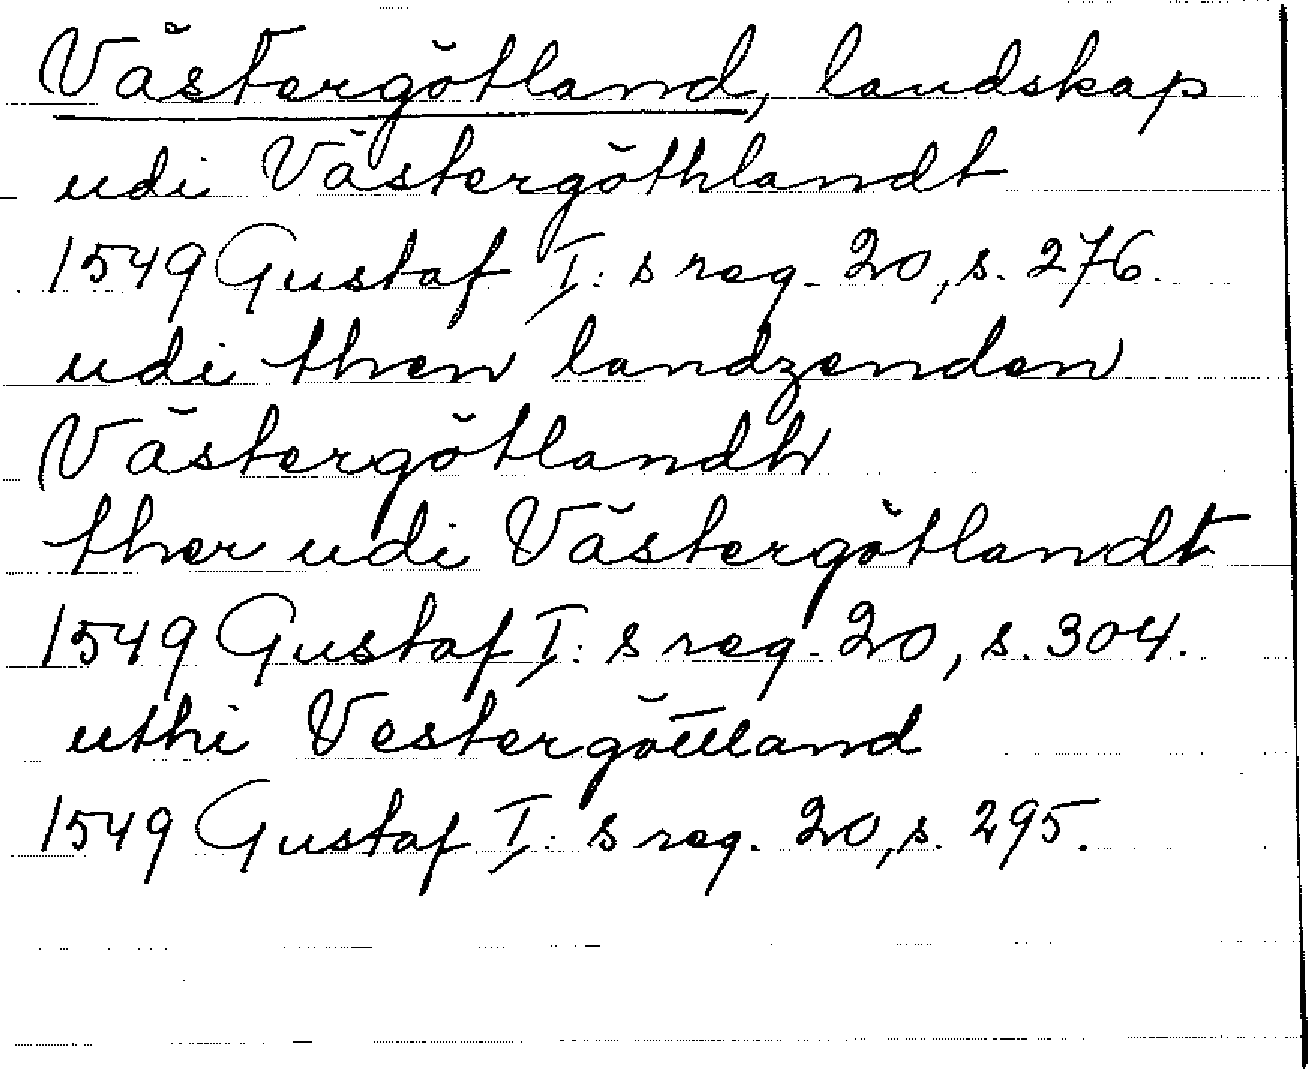 Västergötland, landskap
udi Västergöthlandt
1549 Gustaf I: s reg. 20, s. 276.
udi then landzenden
Västergötlandh
ther udi Västergötlandt
1549 Gustaf I: s reg. 20, s. 304.
uthi Vestergöttland
1549 Gustaf I: s reg. 20, s. 295.